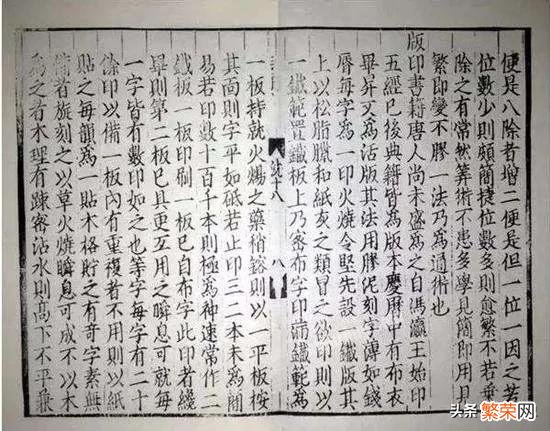 便是八除者增二便是但一位一因之若
位數少則頗簡捷位數多則愈繁不若乗
除之有常然筭術不患多學見簡即用見
繁即變不膠一法乃為通術也
版印書籍唐人尚未盛為之自馮瀛王始印
五經已後典籍皆為版本慶曆中有布衣
畢昇又為活版其法用膠泥刻字薄如錢
脣每字為一印火燒令堅先設一鐵版其
上以松脂臘和紙灰之類冒之欲印則以
一鐵範置鐵板上乃密布字印滿鐵範為
十八
八
一板持就火煬之藥稍鎔則以一平板按
其面則字平如砥若止印三二本未為簡
易若印數十百千本則極為神速常作二
鐵板一板印刷一板已自布字此印者纔
畢則第二板已具更互用之瞬息可就每
一字皆有數印如之也等字每字有二十
餘印以備一板內有重複者不用則以紙
貼之每韻為一貼木格貯之有奇字素無
備者旋刻之以草火燒瞬息可成不以木
為之者木理有踈密沾水則高下不平兼
头条 繁荣网